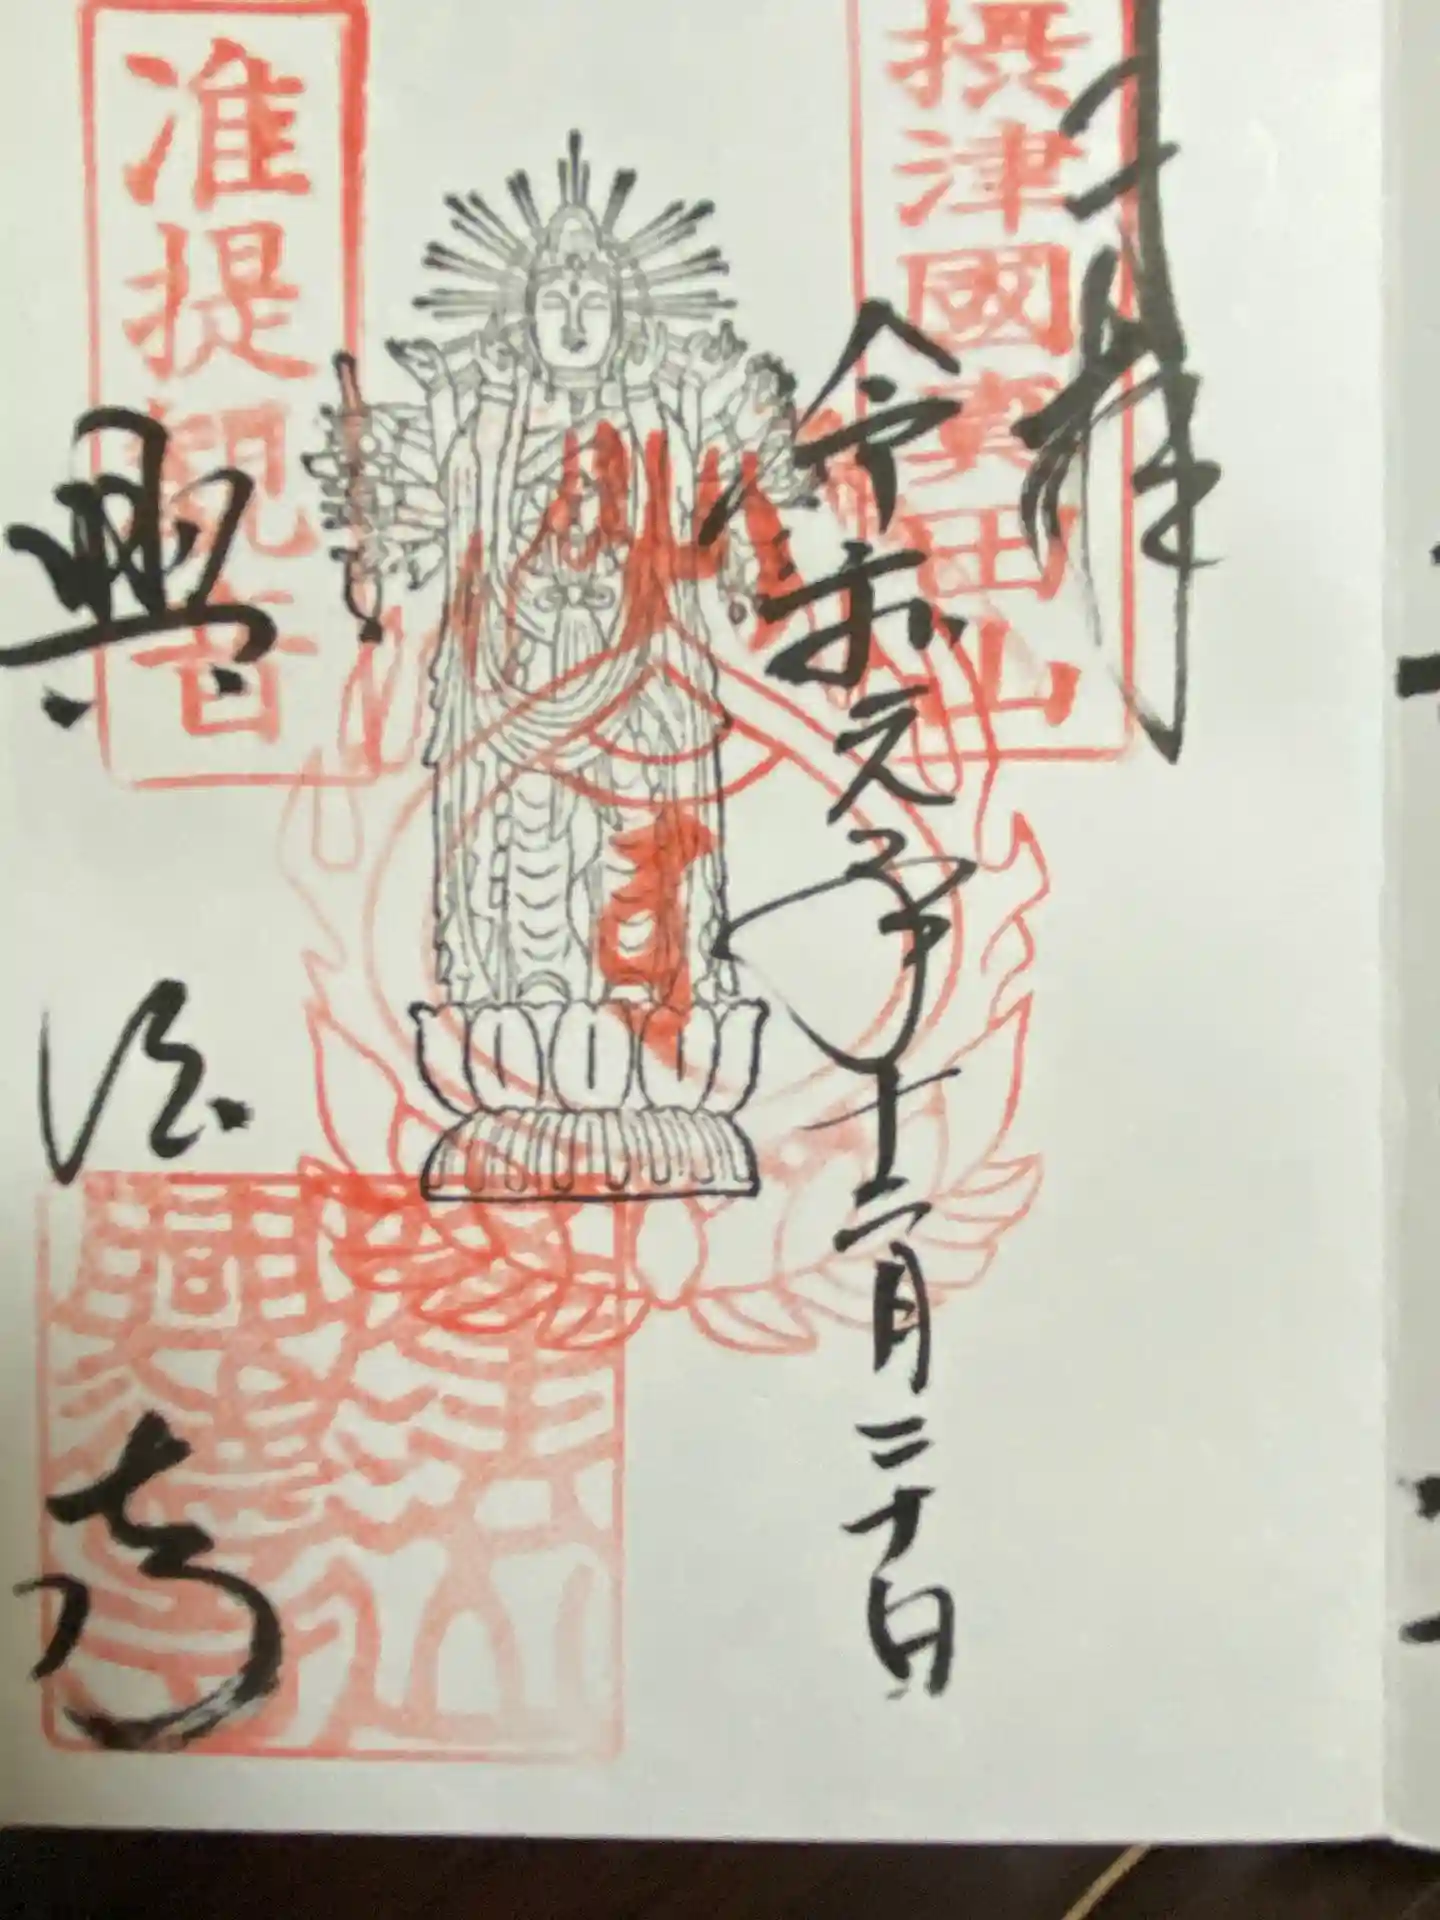 奉拝
摂津國真田山
令和元年十二月二十日
准提観音
興徳寺